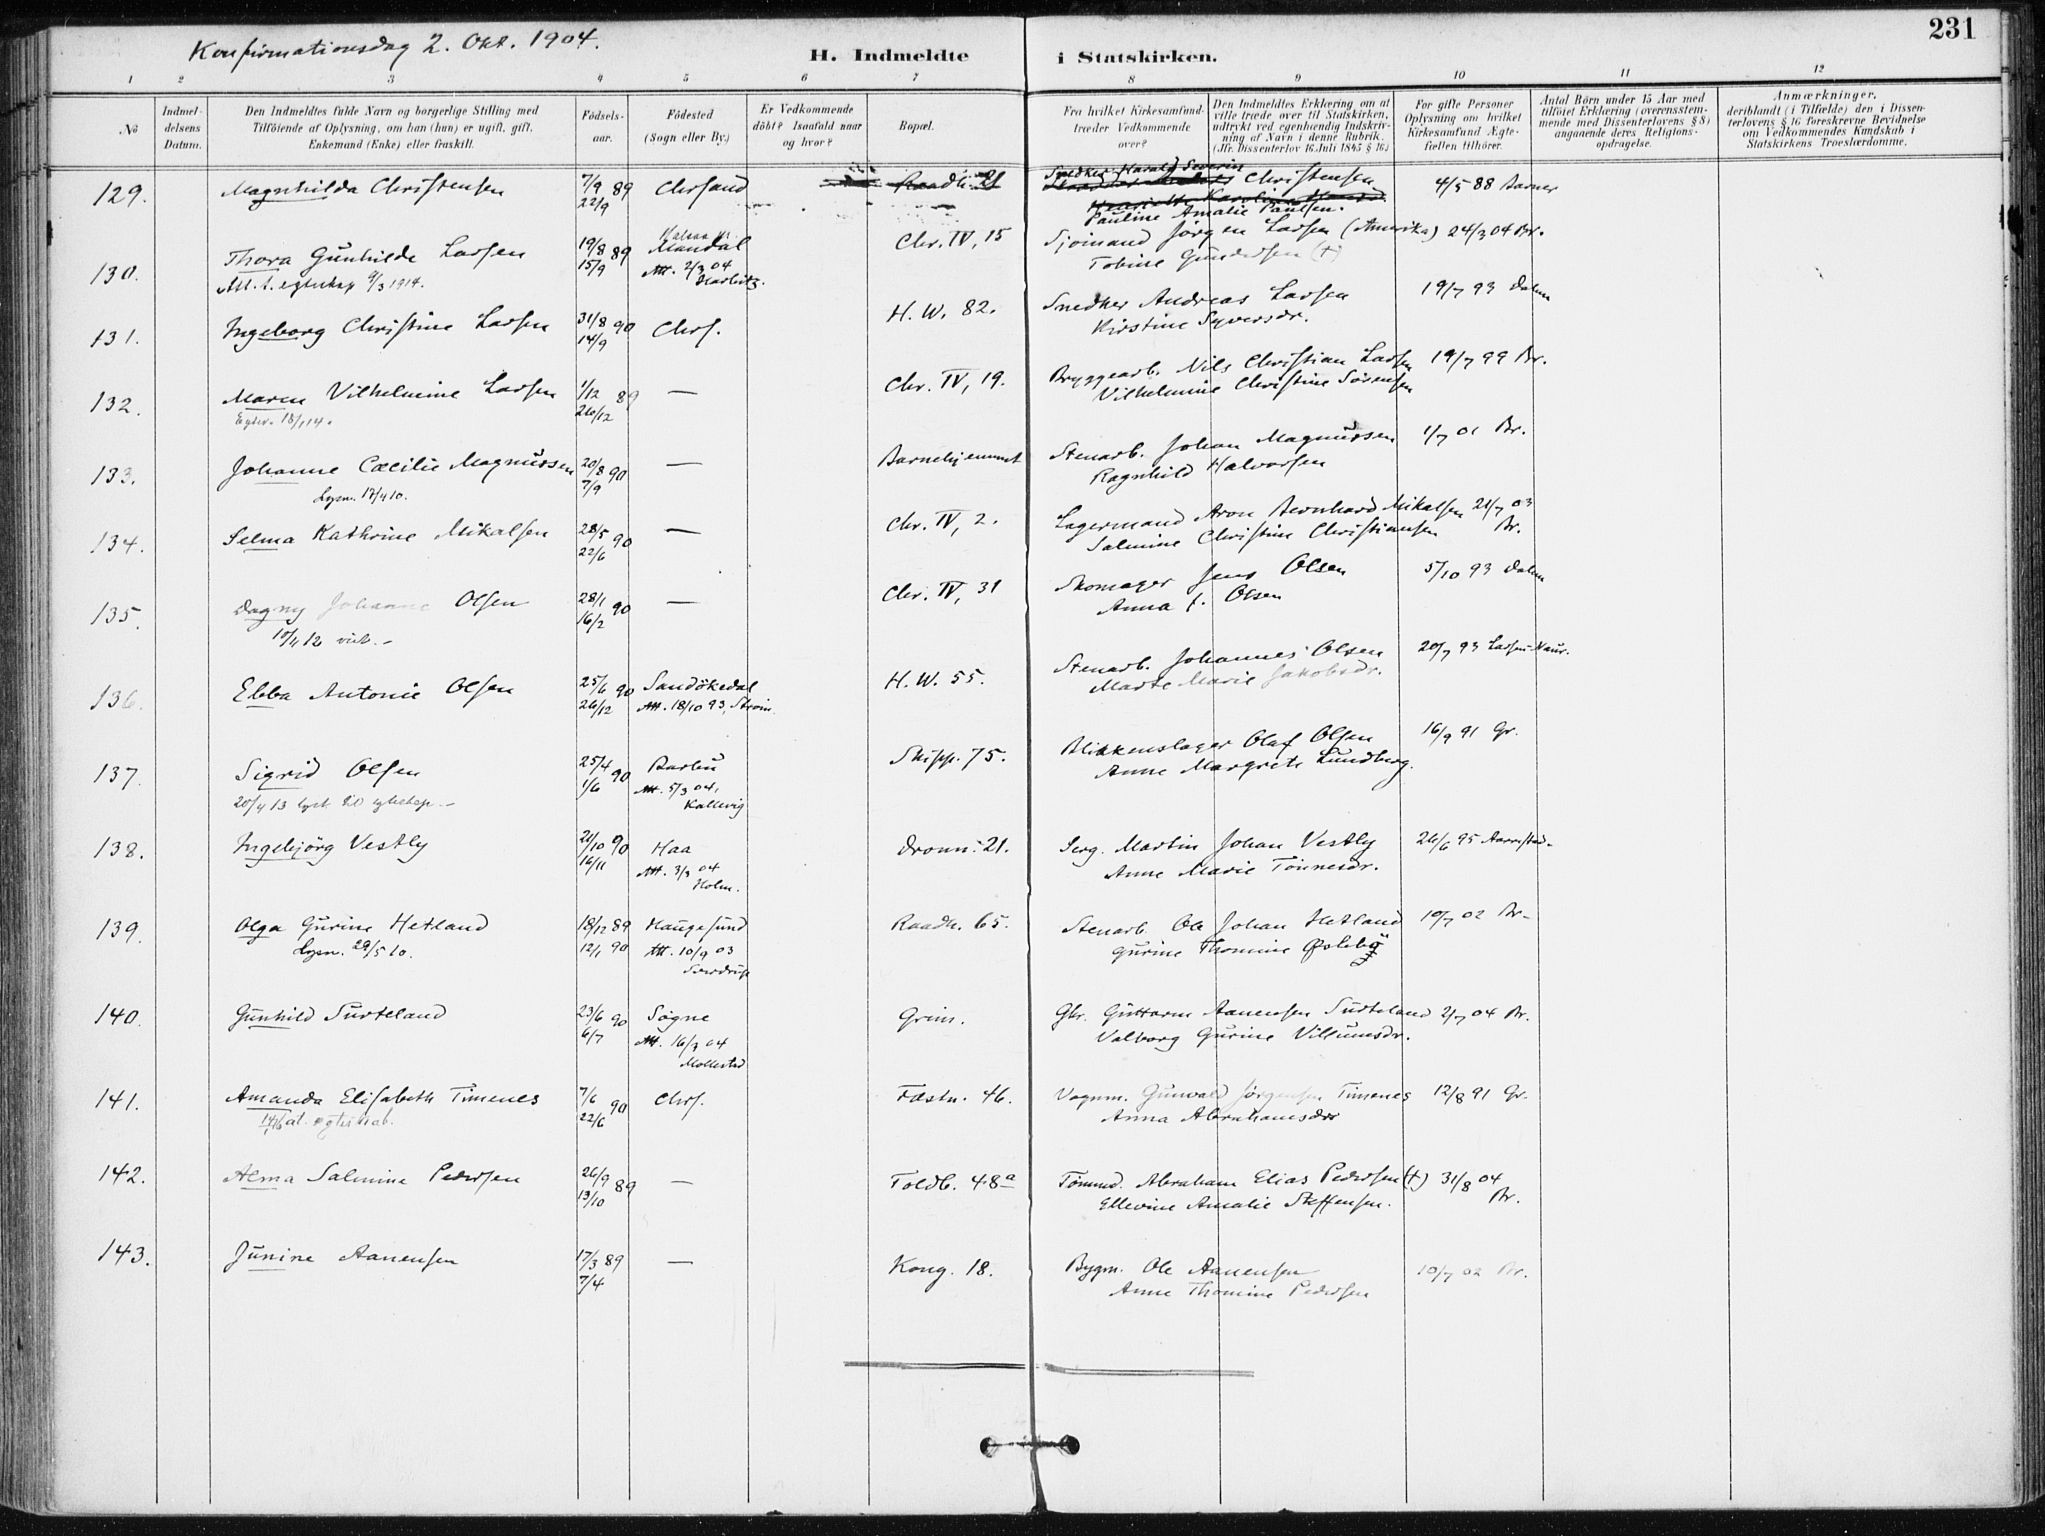 Konfirmationsdag 2. Okt. 1904.
H. Indmeldte i Statskirken.
231
1 2 3 4 5 6 7 8 9 10 11 12
No
Indmeldelsens Datum.
Den Indmeldtes fulde Navn og borgerlige Stilling med
Tilföiende af Oplysning, om han (hun) er ugift, gift,
Enkemand (Enke) eller fraskilt.
Födselsaar.
Födested
(Sogn eller By.)
Er Vedkommende
döbt? Isaafald naar
og hvor?
Bopæl.
Fra hvilket Kirkesamfund
træder Vedkommende
over?
Den Indmeldtes Erklæring om at
ville træde over til Statskirken,
udtrykt ved egenhændig Indskrivning af Navn i denne Rubrik.
(Jfr. Dissenterlov 16 Juli 1845 § 16.)
For gifte Personer
Oplysning om hvilket
Kirkesamfund Ægtefællen tilhörer.
Antal Börn under 15 Aar med
tilföiet Erklæring (overensstemmende med Dissenterlovens § 8)
angaaende deres Religionsopdragelse.
Anmærkninger,
deriblandt (i Tilfælde) den i Dissenterlovens § 16 foreskrevne Bevidnelse
om Vedkommendes Kundskab i
Statskirkens Troeslærdomme.
129. Magnhilda Christensen 7/9 89 22/9 Chrsand Raadh. 21 Snedker Harald Severin Christensen 4/5 88 Barner
Pauline Amalie Paulsen.
130. Thora Gunhilde Larsen 19/8 89 15/9 Mandal Chr. IV, 15 Sjömand Jörgen Larsen (Amerika) 24/3 04 Br.
Att. 2/3 04 Tobine Gundersen (†)
Att. t. egteskap 9/3 1914.
131. Ingeborg Christine Larsen 31/8 90 14/9 Chrs. H. W. 82. Snedker Andreas Larsen 19/7 93 Dalen
Kirstine Syversdr.
132. Maren Vilhelmine Larsen 1/12 89 26/12 — Chr. IV, 19. Bryggearb. Nils Christian Larsen 19/7 99 Br.
Vilhelmine Christine Sörensen
133. Johanne Cæcilie Magnussen 20/8 90 7/9 — Barnehjemmet Stenarb. Johan Magnussen 1/7 01 Br.
Lysn. 17/4 10. Ragnhild Halvorsen
134. Selma Kathrine Mikalsen 28/5 90 22/6 — Chr. IV, 2. Lagermand Aron Bernhard Mikalsen 21/7 03 Br.
Salmine Christine Christiansen
135. Dagny Johanne Olsen 28/1 90 16/2 — Chr. IV, 31 Skomager Jens Olsen 5/10 93 Dalen
Anna f. Olsen
136. Ebba Antonie Olsen 25/6 90 26/12 Sandökedal H. W. 55. Stenarb. Johannes Olsen 20/7 93
Att. 18/10 93, Ström Marte Marie Jakobsdr.
137. Sigrid Olsen 25/4 90 1/6 Barbu Skipp. 75. Blikkenslager Olaf Olsen 16/9 91 Gr.
20/4 13 lyst til egteskap.— Att. 5/3 04, Kallevig Anne Margrete Lundberg.
138. Ingebjörg Vestly 21/10 90 16/11 Haa Dronn. 21. Serg. Martin Johan Vestly 26/6 95 Aarrestad.
Att. 3/3 04 Holm. Anne Marie Tönnesdr.
139. Olga Gurine Hetland 18/12 89 12/1 90 Haugesund Raadh. 65. Stenarb. Ole Johan Hetland 10/7 02 Br.
Lysn. 29/5 10. Att. 10/9 03 Sverdrup Gurine Thomine
140. Gunhild Surteland 23/6 90 6/7 Sögne Grim. Gbr. Guttorm Aanensen Surteland 2/7 04 Br.
Att. 16/3 04 Mollestad Valborg Gurine Villumsdr.
141. Amanda Elisabeth Timenes 7/6 90 22/6 Chrs. Fæstn. 46. Vognm. Gunvald Jörgensen Timenes 12/8 91 Gr.
Anna Abrahamsdr
142. Alma Salmine Pedersen 26/9 89 13/10 — Toldb. 48a Tömmd. Abraham Elias Pedersen (†) 31/8 04 Br.
Ellevine Amalie Steffensen.
143. Junine Aanensen 17/3 89 7/4 — Kong. 18. Bygm. Ole Aanensen 10/7 02 Br.
Anne Thomine Pedersen